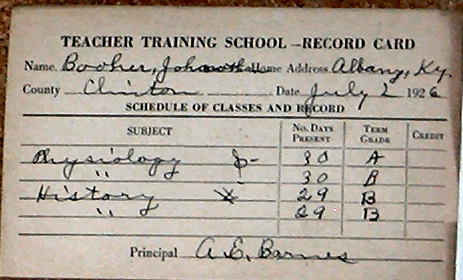 TEACHER TRAINING SCHOOL - RECORD CARD
Name Booher, Home Address Albany, Ky.
County Clinton Date July 2 1926
SCHEDULE OF CLASSES AND RECORD
SUBJECT No. DAYS PRESENT TERM GRADE CREDIT
Physiology 30 A
" 30 B
History 29 B
" 29 B
Principal A. E. Barnes